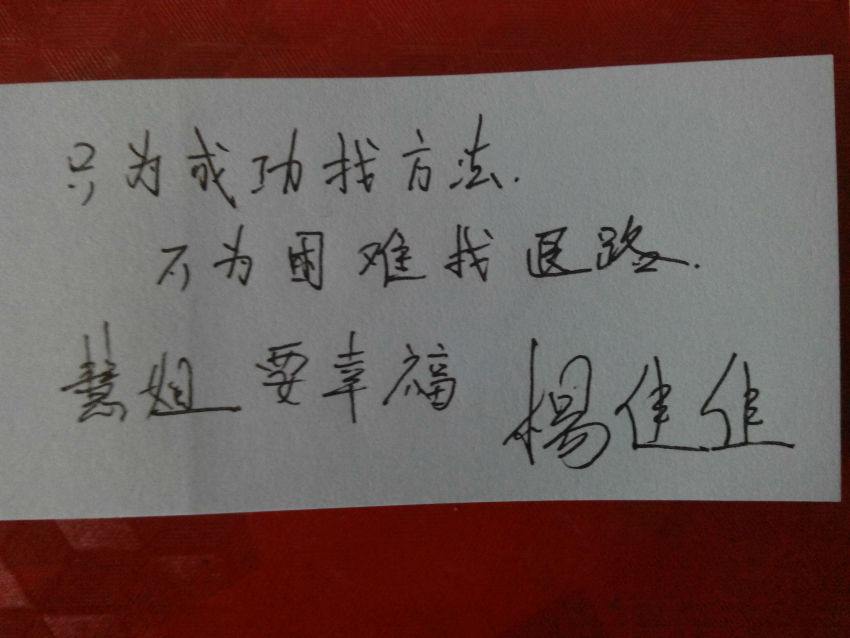 只为成功找方法.
不为困难找退路.
慧姐要幸福 楊佳佳